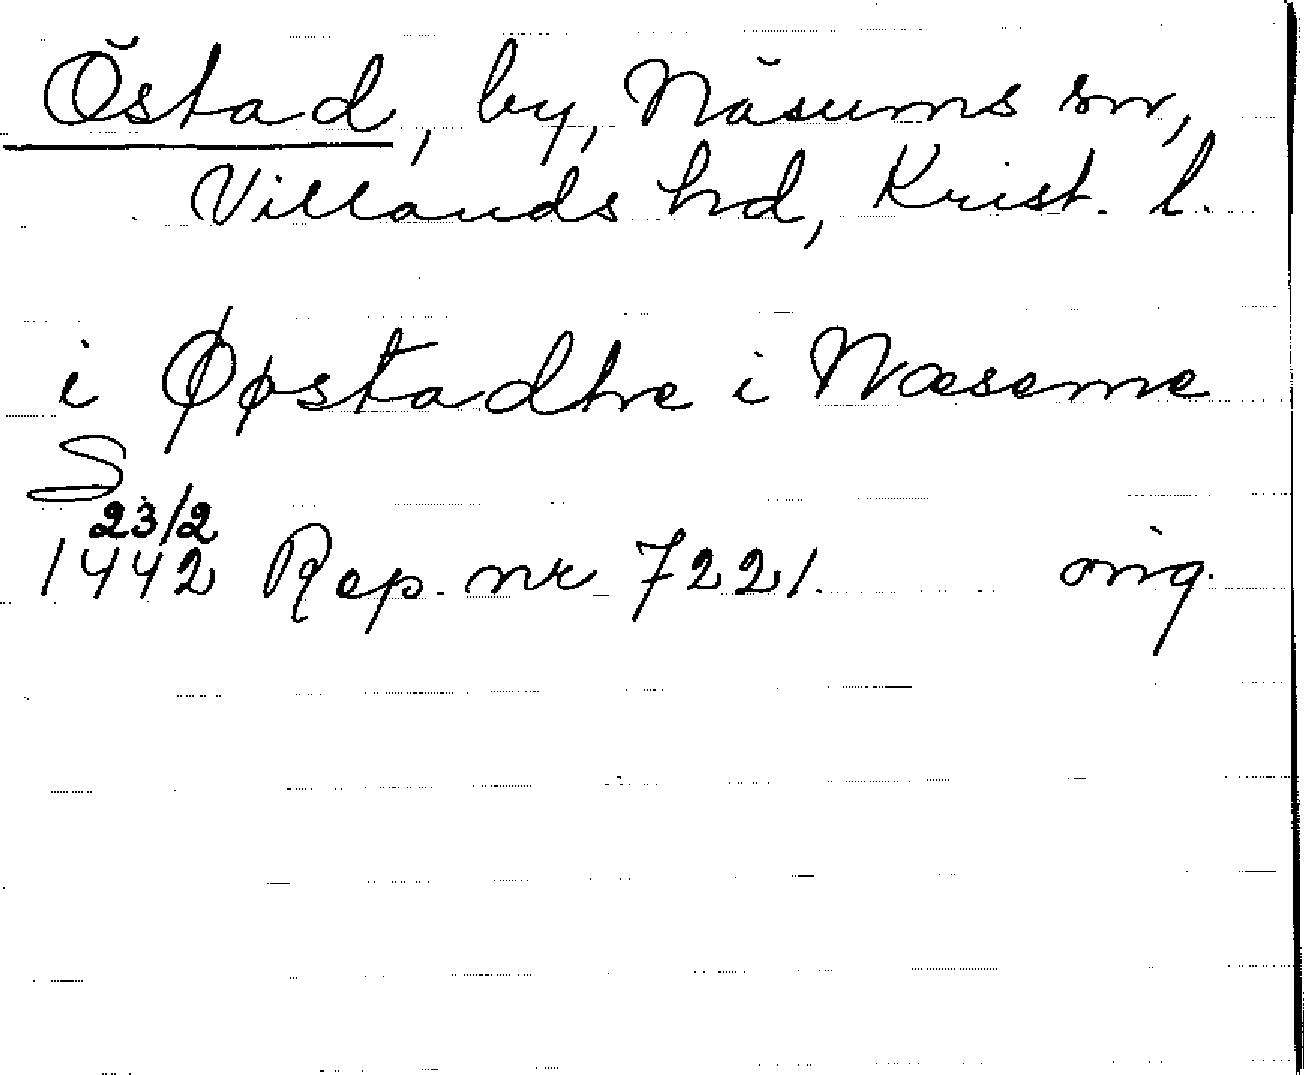 Östad, by, Näsums sn,
Villands hd, Krist. l.
i Øøstadhe i Næseme
S
23/2
1442 Rep. nr 7221. orig.